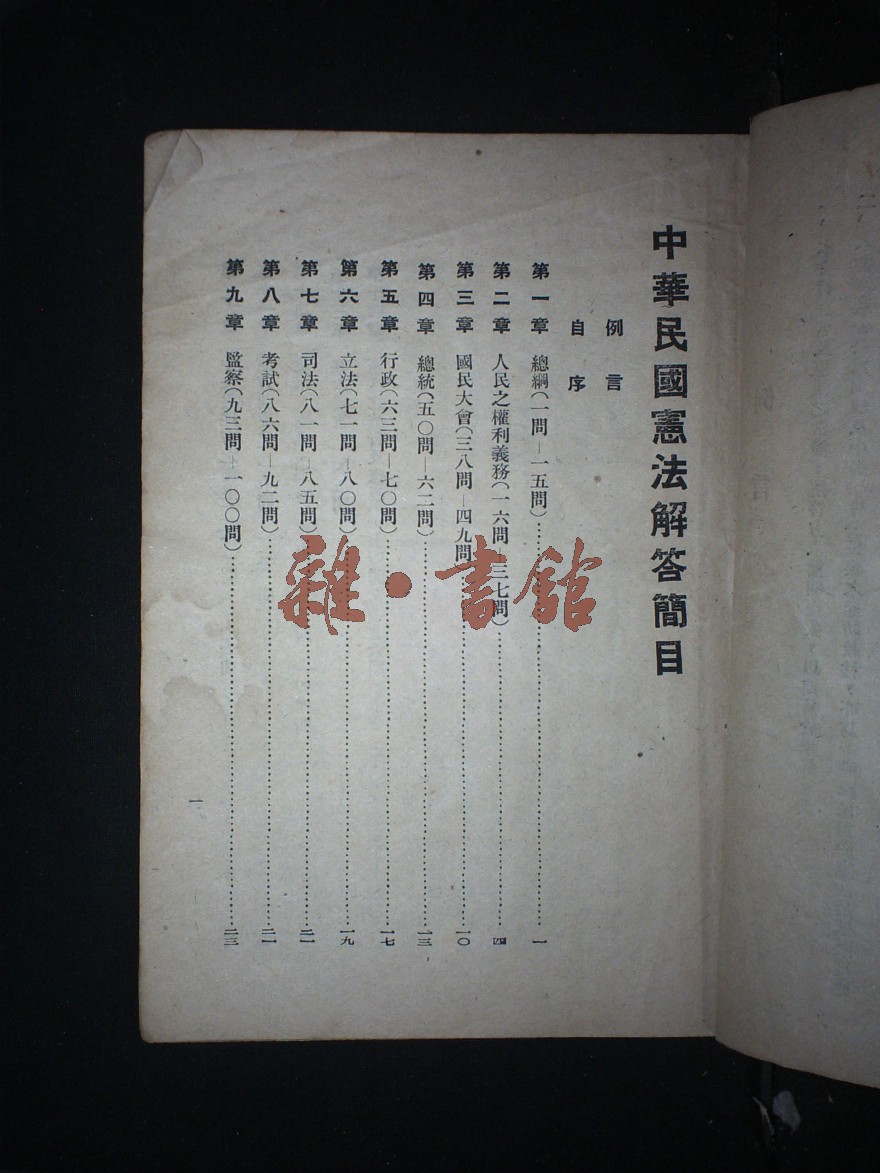 中華民國憲法解答簡目
例言
自序
第一章 總綱(一問—一五問)……一
第二章 人民之權利義務(一六問—三七問)……四
第三章 國民大會(三八問—四九問)……一〇
第四章 總統(五〇問—六二問)……一三
第五章 行政(六三問—七〇問)……一七
第六章 立法(七一問—八〇問)……一九
第七章 司法(八一問—八五問)……二一
第八章 考試(八六問—九二問)……二一
第九章 監察(九三問—一〇〇問)……二三
一
雜·書館